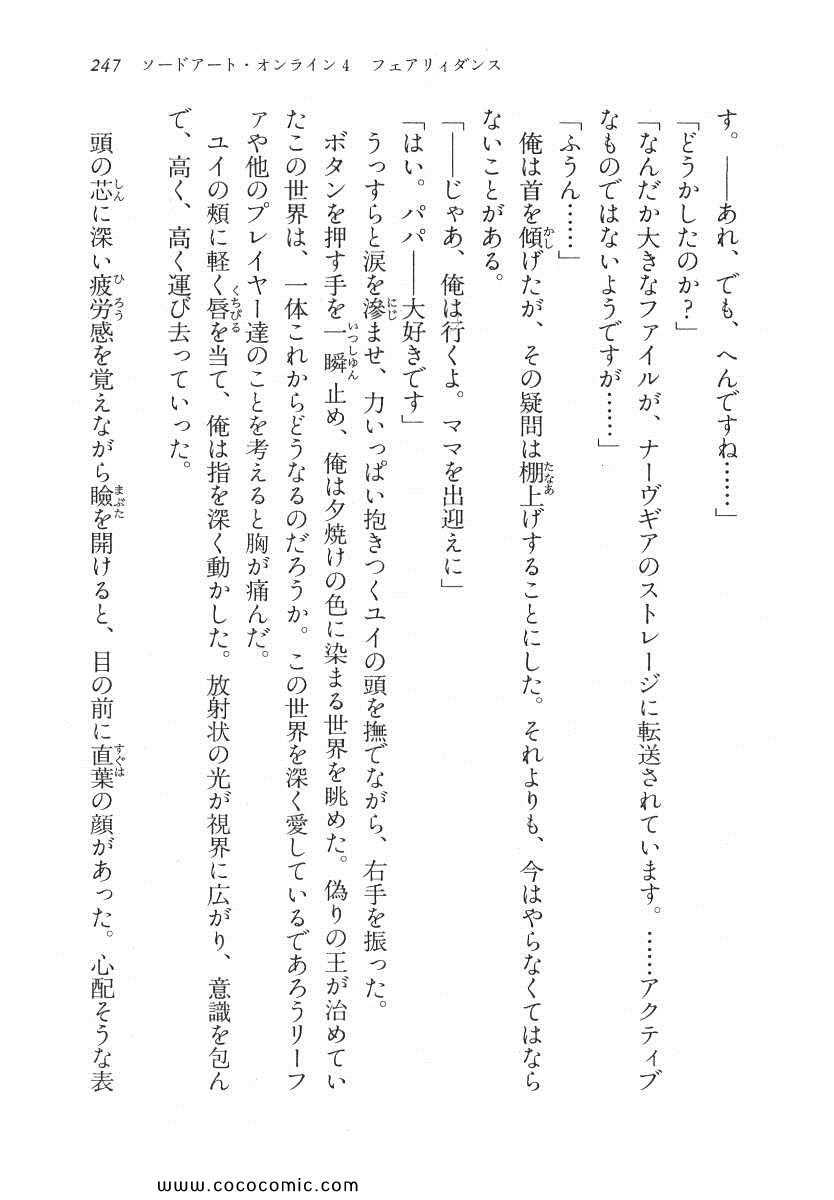 247 ソードアート・オンライン4 フェアリィダンス
す。――あれ、でも、へんですね……」
「どうかしたのか?」
「なんだか大きなファイルが、ナーヴギアのストレージに転送されています。……アクティブ
なものではないようですが……」
「ふうん……」
俺は首を傾げたが、その疑問は棚上げすることにした。それよりも、今はやらなくてはなら
ないことがある。
「――じゃあ、俺は行くよ。ママを出迎えに」
「はい。パパ――大好きです」
うっすらと涙を滲ませ、力いっぱい抱きつくユイの頭を撫でながら、右手を振った。
ボタンを押す手を一瞬止め、俺は夕焼けの色に染まる世界を眺めた。偽りの王が治めてい
たこの世界は、一体これからどうなるのだろうか。この世界を深く愛しているであろうリーフ
ァや他のプレイヤー達のことを考えると胸が痛んだ。
ユイの頰に軽く唇を当て、俺は指を深く動かした。放射状の光が視界に広がり、意識を包ん
で、高く、高く運び去っていった。
頭の芯に深い疲労感を覚えながら瞼を開けると、目の前に直葉の顔があった。心配そうな表
www.cococomic.com